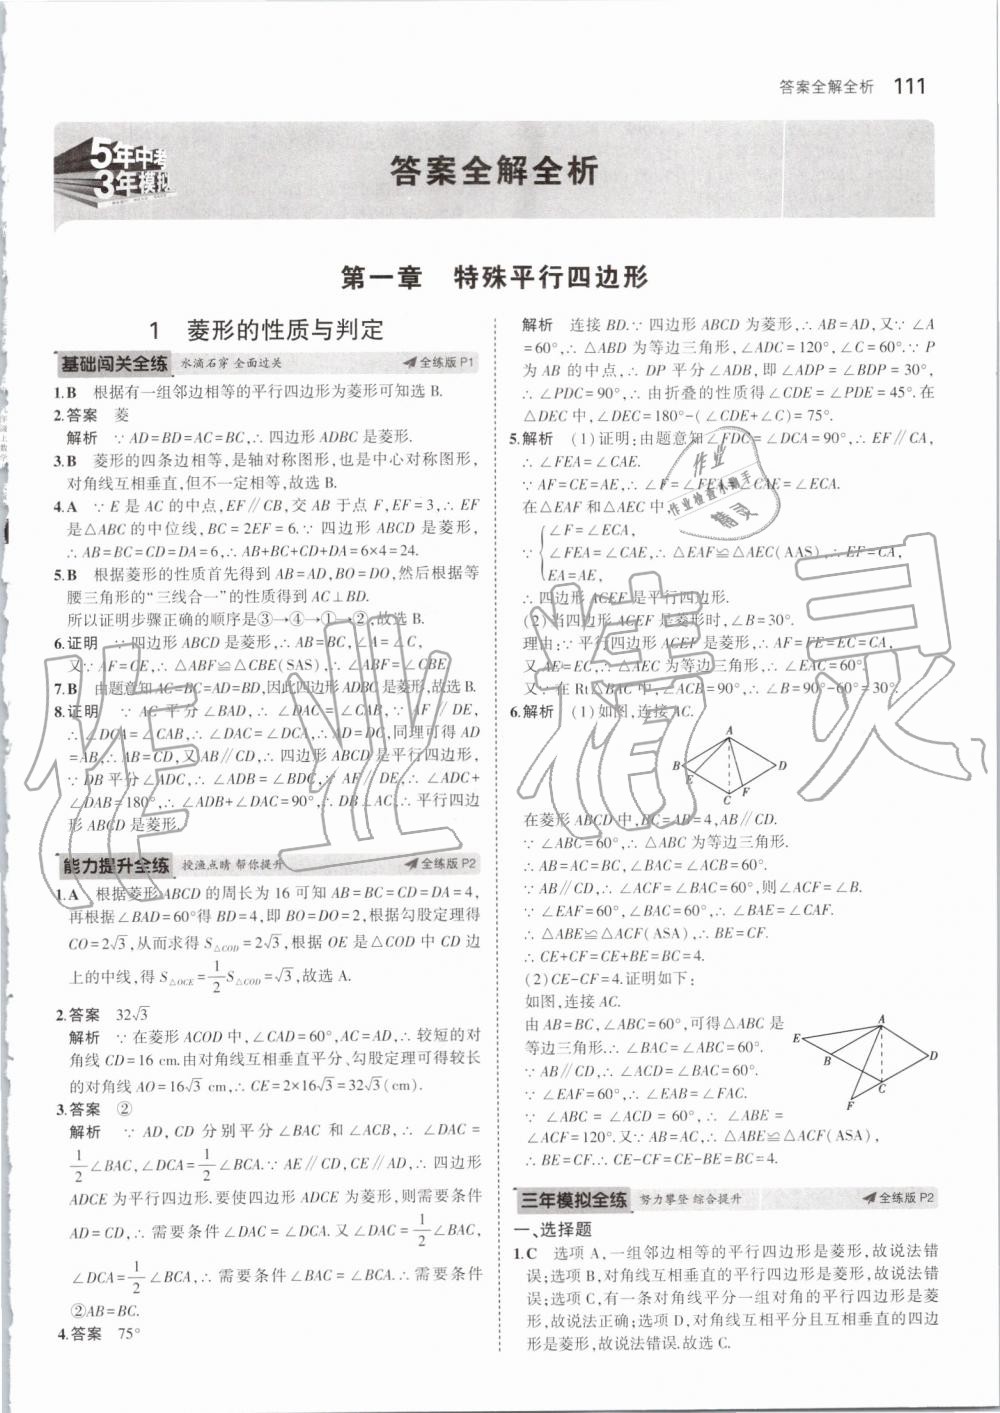 答案全解全析 111
5年中考
3年模拟
答案全解全析
第一章 特殊平行四边形
1 菱形的性质与判定
基础闯关全练 水滴石穿 全面过关 全练版P1
1.B 根据有一组邻边相等的平行四边形为菱形可知选B.
2.答案 菱
解析 ∵AD=BD=AC=BC,∴四边形ADBC是菱形.
3.B 菱形的四条边相等,是轴对称图形,也是中心对称图形,
对角线互相垂直,但不一定相等,故选B.
4.A ∵E是AC的中点,EF∥CB,交AB于点F,EF=3,∴EF
是△ABC的中位线,BC=2EF=6.∵四边形ABCD是菱形,
∴AB=BC=CD=DA=6,∴AB+BC+CD+DA=6×4=24.
5.B 根据菱形的性质首先得到AB=AD,BO=DO,然后根据等
腰三角形的“三线合一”的性质得到AC⊥BD.
所以证明步骤正确的顺序是③→④→①→②,故选B.
6.证明 ∵四边形ABCD是菱形,∴AB=BC,∠A=∠C,
又∵AF=CE,∴△ABF≌△CBE(SAS),∴∠ABF=∠CBE.
7.B 由题意知AC=BC=AD=BD,因此四边形ADBC是菱形,故选B.
8.证明 ∵AC平分∠BAD,∴∠DAC=∠CAB,∵AF∥DE,
∴∠DCA=∠CAB,∴∠DAC=∠DCA,∴AD=DC,同理可得AD
=AB,∴AB=CD,又AB∥CD,∴四边形ABCD是平行四边形,
∵DB平分∠ADC,∴∠ADB=∠BDC,∵AF∥DE,∴∠ADC+
∠DAB=180°,∴∠ADB+∠DAC=90°,∴DB⊥AC,∴平行四边
形ABCD是菱形.
能力提升全练 授渔点睛 帮你提升 全练版P2
1.A 根据菱形ABCD的周长为16可知AB=BC=CD=DA=4,
再根据∠BAD=60°得BD=4,即BO=DO=2,根据勾股定理得
CO=2√3,从而求得S△COD=2√3,根据OE是△COD中CD边
上的中线,得S△OCE=1/2S△COD=√3,故选A.
2.答案 32√3
解析 ∵在菱形ACOD中,∠CAD=60°,AC=AD,∴较短的对
角线CD=16 cm.由对角线互相垂直平分、勾股定理可得较长
的对角线AO=16√3 cm,∴CE=2×16√3=32√3(cm).
3.答案 ②
解析 ∵AD,CD分别平分∠BAC和∠ACB,∴∠DAC=
1/2∠BAC,∠DCA=1/2∠BCA.∵AE∥CD,CE∥AD,∴四边形
ADCE为平行四边形.要使四边形ADCE为菱形,则需要条件
AD=CD,∴需要条件∠DAC=∠DCA.又∠DAC=1/2∠BAC,
∠DCA=1/2∠BCA,∴需要条件∠BAC=∠BCA,∴需要条件
②AB=BC.
4.答案 75°
解析 连接BD.∵四边形ABCD为菱形,∴AB=AD,又∵∠A
=60°,∴△ABD为等边三角形,∠ADC=120°,∠C=60°.∵P
为AB的中点,∴DP平分∠ADB,即∠ADP=∠BDP=30°,
∴∠PDC=90°,∴由折叠的性质得∠CDE=∠PDE=45°.在
△DEC中,∠DEC=180°-(∠CDE+∠C)=75°.
5.解析 (1)证明:由题意知∠FDC=∠DCA=90°,∴EF∥CA,
∴∠FEA=∠CAE.
∵AF=CE=AE,∴∠F=∠FEA=∠CAE=∠ECA.
在△EAF和△AEC中,
∵{∠F=∠ECA,
∠FEA=∠CAE,∴△EAF≌△AEC(AAS),∴EF=CA,
EA=AE,
∴四边形ACEF是平行四边形.
(2)当四边形ACEF是菱形时,∠B=30°.
理由:∵平行四边形ACEF是菱形,∴AF=FE=EC=CA,
又AE=EC,∴△AEC为等边三角形,∴∠EAC=60°.
又∵在Rt△BAC中,∠ACB=90°,∴∠B=90°-60°=30°.
6.解析 (1)如图,连接AC.
A
B
D
E
C
F
在菱形ABCD中,BC=AB=4,AB∥CD.
∵∠ABC=60°,∴△ABC为等边三角形.
∴AB=AC=BC,∠BAC=60°.
∵AB∥CD,∴∠ACF=∠BAC=60°,则∠ACF=∠B.
∵∠EAF=60°,∠BAC=60°,∴∠BAE=∠CAF.
∴△ABE≌△ACF(ASA),∴BE=CF.
∴CE+CF=CE+BE=BC=4.
(2)CE-CF=4.证明如下:
如图,连接AC.
由AB=BC,∠ABC=60°,可得△ABC是
等边三角形.∴∠BAC=∠ABC=60°.
∵AB∥CD,∴∠ACD=∠BAC=60°.
∵∠EAF=60°,∴∠EAB=∠FAC.
∵∠ABC=∠ACD=60°,∴∠ABE=
∠ACF=120°.又∵AB=AC,∴△ABE≌△ACF(ASA),
∴BE=CF.∴CE-CF=CE-BE=BC=4.
A
E
B
D
C
F
三年模拟全练 努力攀登 综合提升 全练版P2
一、选择题
1.C 选项A,一组邻边相等的平行四边形是菱形,故说法错
误;选项B,对角线互相垂直的平行四边形是菱形,故说法错
误;选项C,有一条对角线平分一组对角的平行四边形是菱
形,故说法正确;选项D,对角线互相平分且互相垂直的四边
形是菱形,故说法错误.故选C.
作业精灵
作业
作业检查小助手
精灵